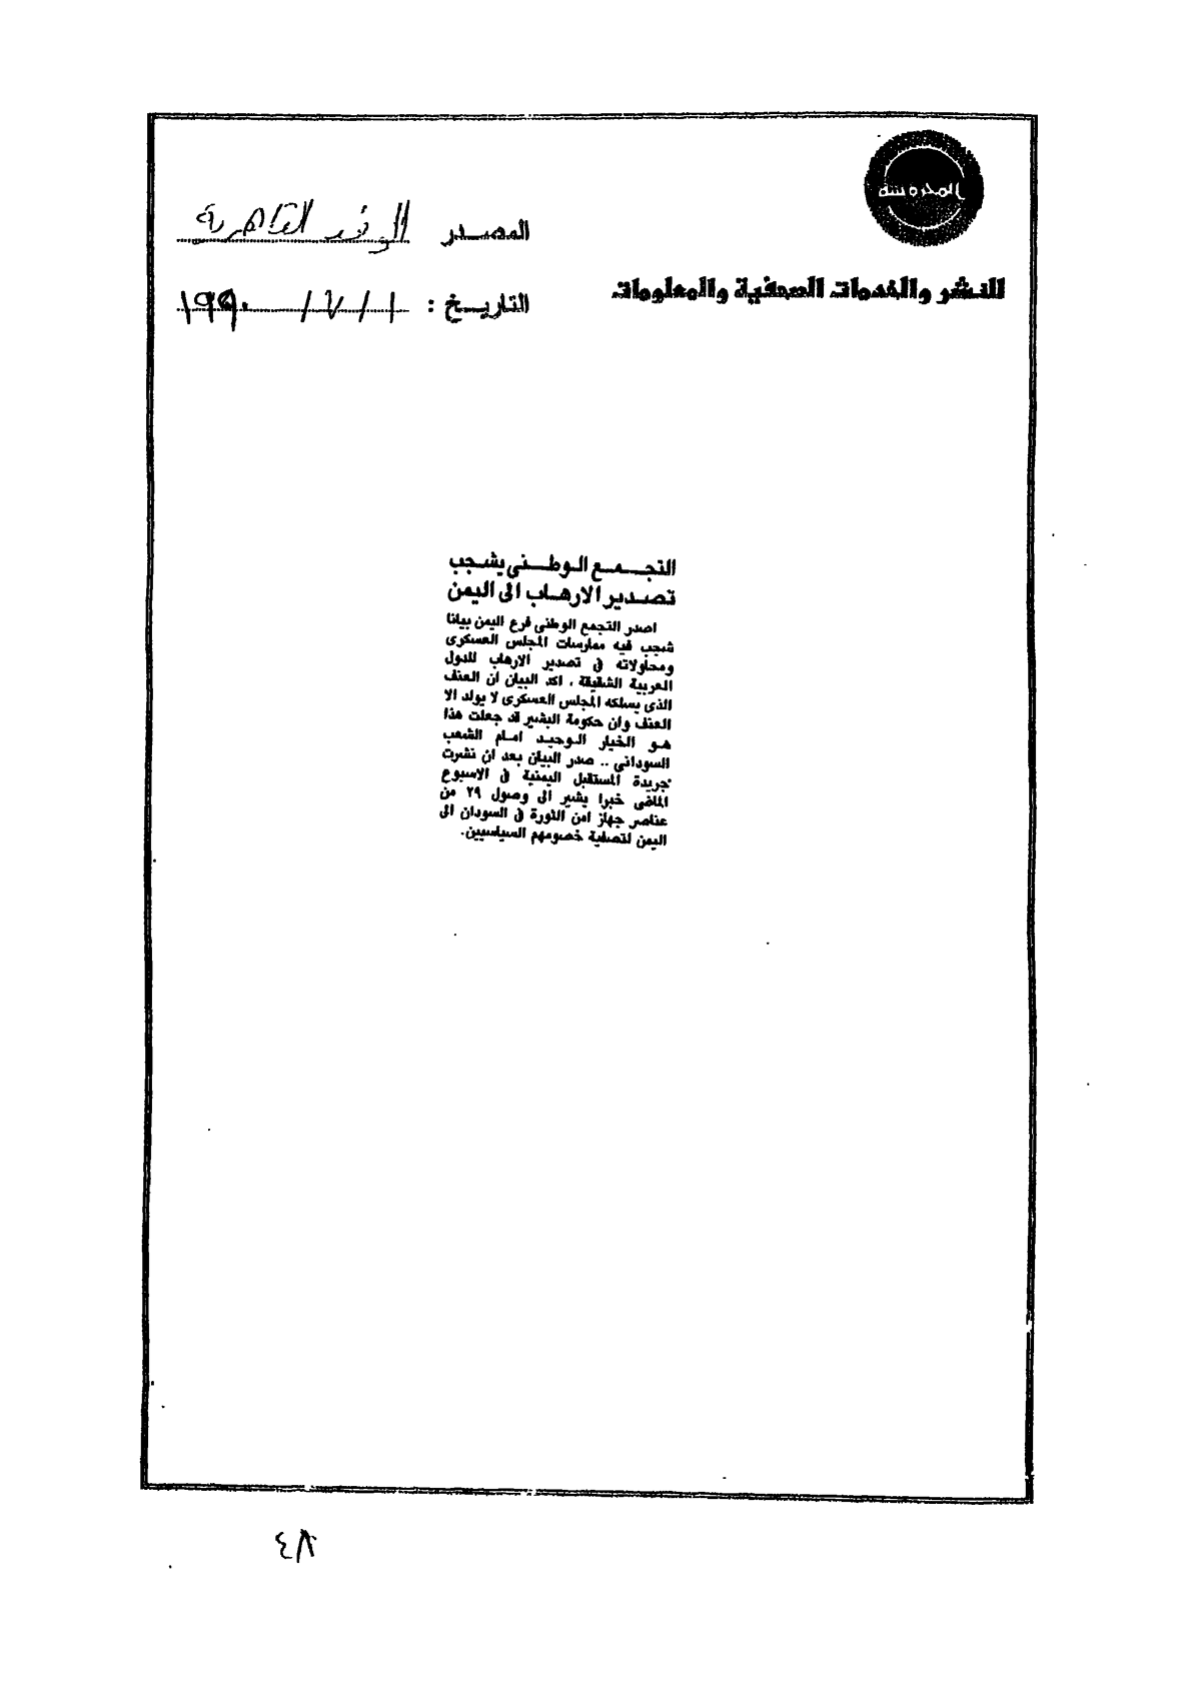 المحروسة
للنشر والخدمات الصحفية والمعلومات
المصدر الوفد القاهرية
التاريخ : ١ / ٧ / ١٩٩٠
التجمع الوطنى يشجب
تصدير الارهاب الى اليمن
اصدر التجمع الوطنى فرع اليمن بيانا
شجب فيه ممارسات المجلس العسكرى
ومحاولاته فى تصدير الارهاب للدول
العربية الشقيقة ، اكد البيان ان العنف
الذى يسلكه المجلس العسكرى لا يولد الا
العنف وان حكومة البشير قد جعلت هذا
هو الخيار الوحيد امام الشعب
السودانى .. صدر البيان بعد ان نشرت
جريدة المستقبل اليمنية فى الاسبوع
الماضى خبرا يشير الى وصول ٢٩ من
عناصر جهاز امن الثورة فى السودان الى
اليمن لتصفية خصومهم السياسيين.
٨٤